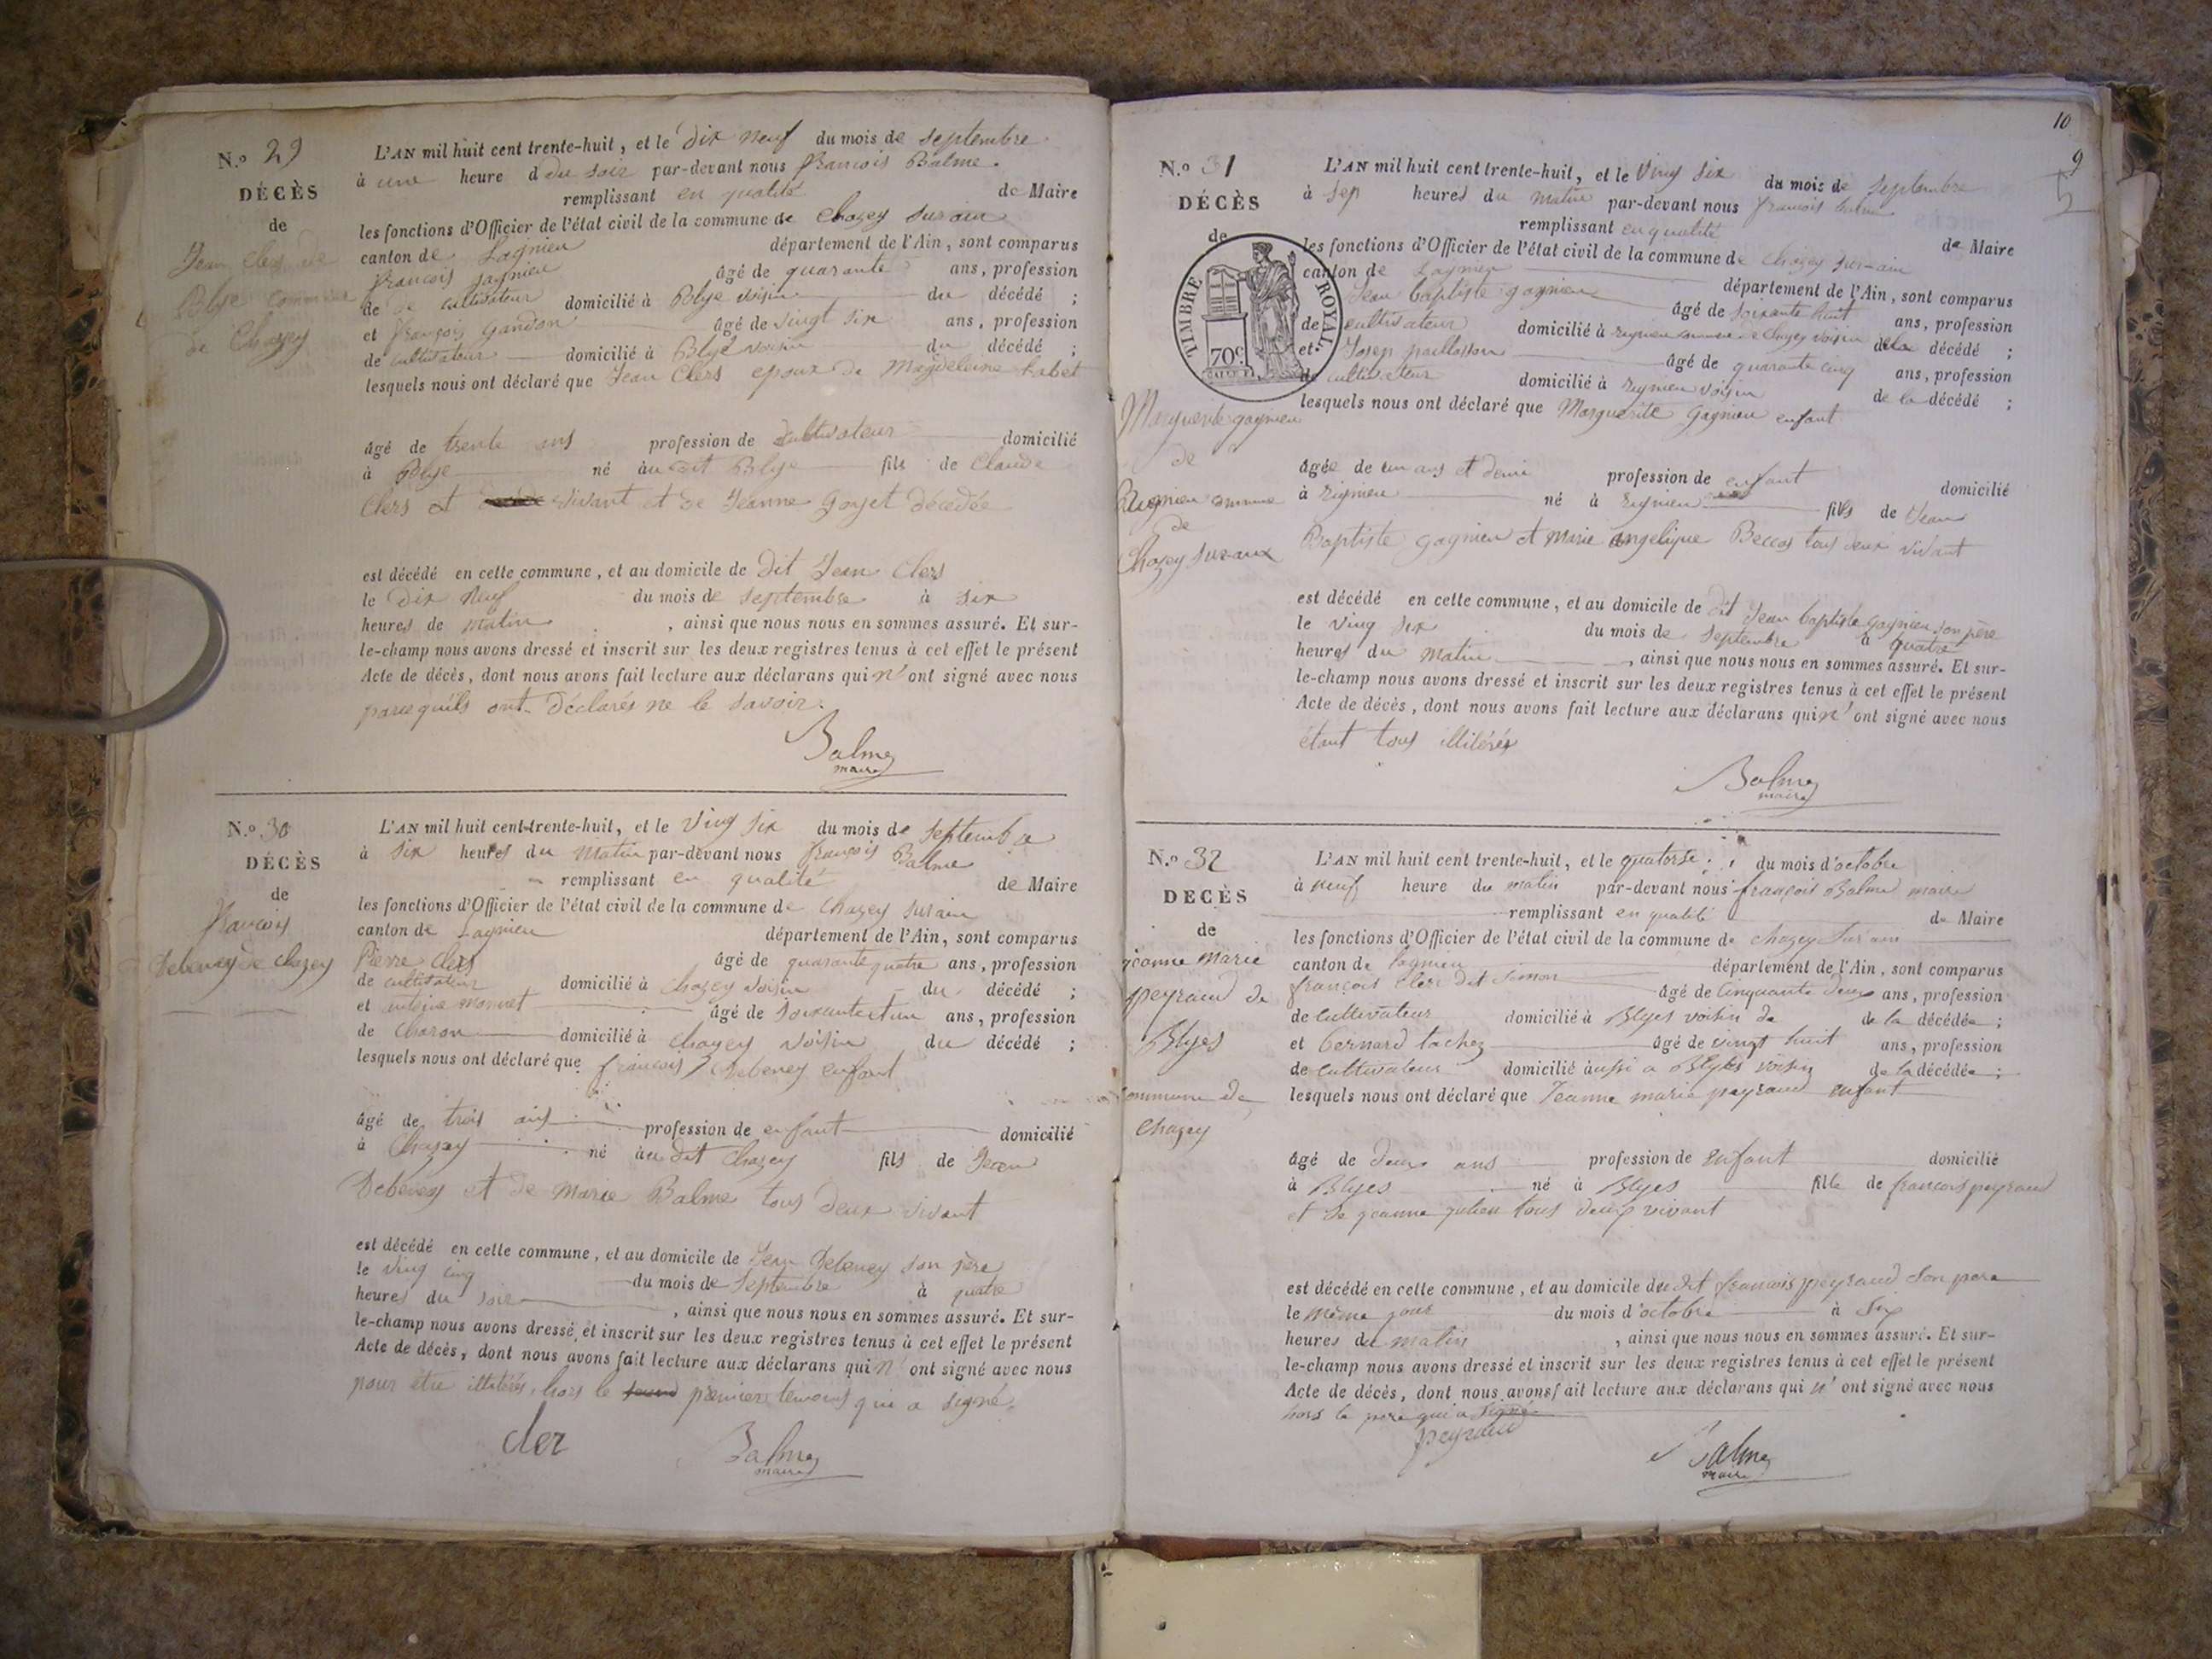 N.o 29
DÉCÈS
de
Jean Clers de
Blye commune
de Chazey
L'AN mil huit cent trente-huit, et le dix neuf du mois de septembre
à une heure d du soir par-devant nous francois Balme.
remplissant en qualité de Maire
les fonctions d'Officier de l'état civil de la commune de Chazey surain
canton de Lagnieu département de l'Ain, sont comparus
francois gagnieu âgé de quarante ans, profession
de de cultivateur domicilié à Blye voisin du décédé ;
et françois Gandon âgé de vingt six ans, profession
de cultivateur domicilié à Blye voisin du décédé ;
lesquels nous ont déclaré que Jean Clers epoux de Magdeleine
âgé de trente ans profession de cultivateur domicilié
à Blye né àu dit Blye fils de Claude
Clers et vivant et de Jeanne goyet décedée
est décédé en cette commune, et au domicile de dit Jean Clers
le dix neuf du mois de septembre à six
heures de matin , ainsi que nous nous en sommes assuré. Et sur-
le-champ nous avons dressé et inscrit sur les deux registres tenus à cet effet le présent
Acte de décès, dont nous avons fait lecture aux déclarans qui n' ont signé avec nous
parcequ'ils ont déclarés ne le savoir.
Balme
maire
N.o 30
DÉCÈS
de
francois
Debeney de chazey
L'AN mil huit cent trente-huit, et le ving six du mois de septembre
à six heures du matin par-devant nous françois Balme
remplissant en qualité de Maire
les fonctions d'Officier de l'état civil de la commune de Chazey surain
canton de Lagnieu département de l'Ain, sont comparus
Pierre Clers âgé de quarante quatre ans, profession
de cultivateur domicilié à Chazey voisin du décédé ;
et monnet âgé de soixante et un ans, profession
de charon domicilié à chazey voisin du décédé ;
lesquels nous ont déclaré que francois Debeney enfant
âgé de trois ans profession de enfant domicilié
à Chazey né àu dit Chazey fils de Jean
Debeney et de Marie Balme tous deux vivant
est décédé en cette commune, et au domicile de Jean Debeney son père
le ving cinq du mois de septembre à quatre
heures du soir , ainsi que nous nous en sommes assuré. Et sur-
le-champ nous avons dressé et inscrit sur les deux registres tenus à cet effet le présent
Acte de décès, dont nous avons fait lecture aux déclarans qui n' ont signé avec nous
pour être illitérés, hors le premier temoins qui a signé.
cler Balme
maire
10
9
N.o 31
DÉCÈS
de
TIMBRE ROYAL
70c
Marguerite gagnieu
de
Rignieu commune
de
Chazey suraux
L'AN mil huit cent trente-huit, et le ving six du mois de septembre
à sep heures du matin par-devant nous francois balme
remplissant en qualité de Maire
les fonctions d'Officier de l'état civil de la commune de Chazey sur-ain
canton de Lagnieu département de l'Ain, sont comparus
Jean baptiste gagnieu âgé de soixante huit ans, profession
de cultivateur domicilié à rignieu commune de chazey voisin de la décédé ;
et Josep paillasson âgé de quarante cinq ans, profession
de cultivateur domicilié à rignieu voisin de la décédé ;
lesquels nous ont déclaré que Marguerite gagnieu enfant
âgée de un ans et demi profession de enfant domicilié
à rignieu né à rignieu fils de Jean
Baptiste gagnieu et Marie angelique Beccas tous deux vivant
est décédé en cette commune, et au domicile de dit Jean baptiste gagnieu son père
le ving six du mois de septembre à quatre
heures du matin , ainsi que nous nous en sommes assuré. Et sur-
le-champ nous avons dressé et inscrit sur les deux registres tenus à cet effet le présent
Acte de décès, dont nous avons fait lecture aux déclarans qui n' ont signé avec nous
étant tous illitérés
Balme
maire
N.o 32
DECÈS
de
jeanne marie
peyraud de
Blyes
commune de
chazey
L'AN mil huit cent trente-huit, et le quatorse du mois d'octobre
à neuf heure du matin par-devant nous françois Balme maire
remplissant en qualité de Maire
les fonctions d'Officier de l'état civil de la commune de chazey Sur ain
canton de lagnieu département de l'Ain, sont comparus
françois Clerc dit simon âgé de Cinquante deux ans, profession
de cultivateur domicilié à Blyes voisin de de la décédée ;
et bernard tachez âgé de vingt huit ans, profession
de cultivateur domicilié àussi a Blyes voisin de la décédée ;
lesquels nous ont déclaré que Jeanne marie peyraud enfant
âgé de deux ans profession de enfant domicilié
à Blyes né à Blyes fille de francois peyraud
et de jeanne julien tous deux vivant
est décédé en cette commune, et au domicile du dit francois peyraud son pere
le même jour du mois d'octobre à six
heures du matin , ainsi que nous nous en sommes assuré. Et sur-
le-champ nous avons dressé et inscrit sur les deux registres tenus à cet effet le présent
Acte de décès, dont nous avons fait lecture aux déclarans qui n' ont signé avec nous
hors le pere qui a signé
peyraud
Balme
maire